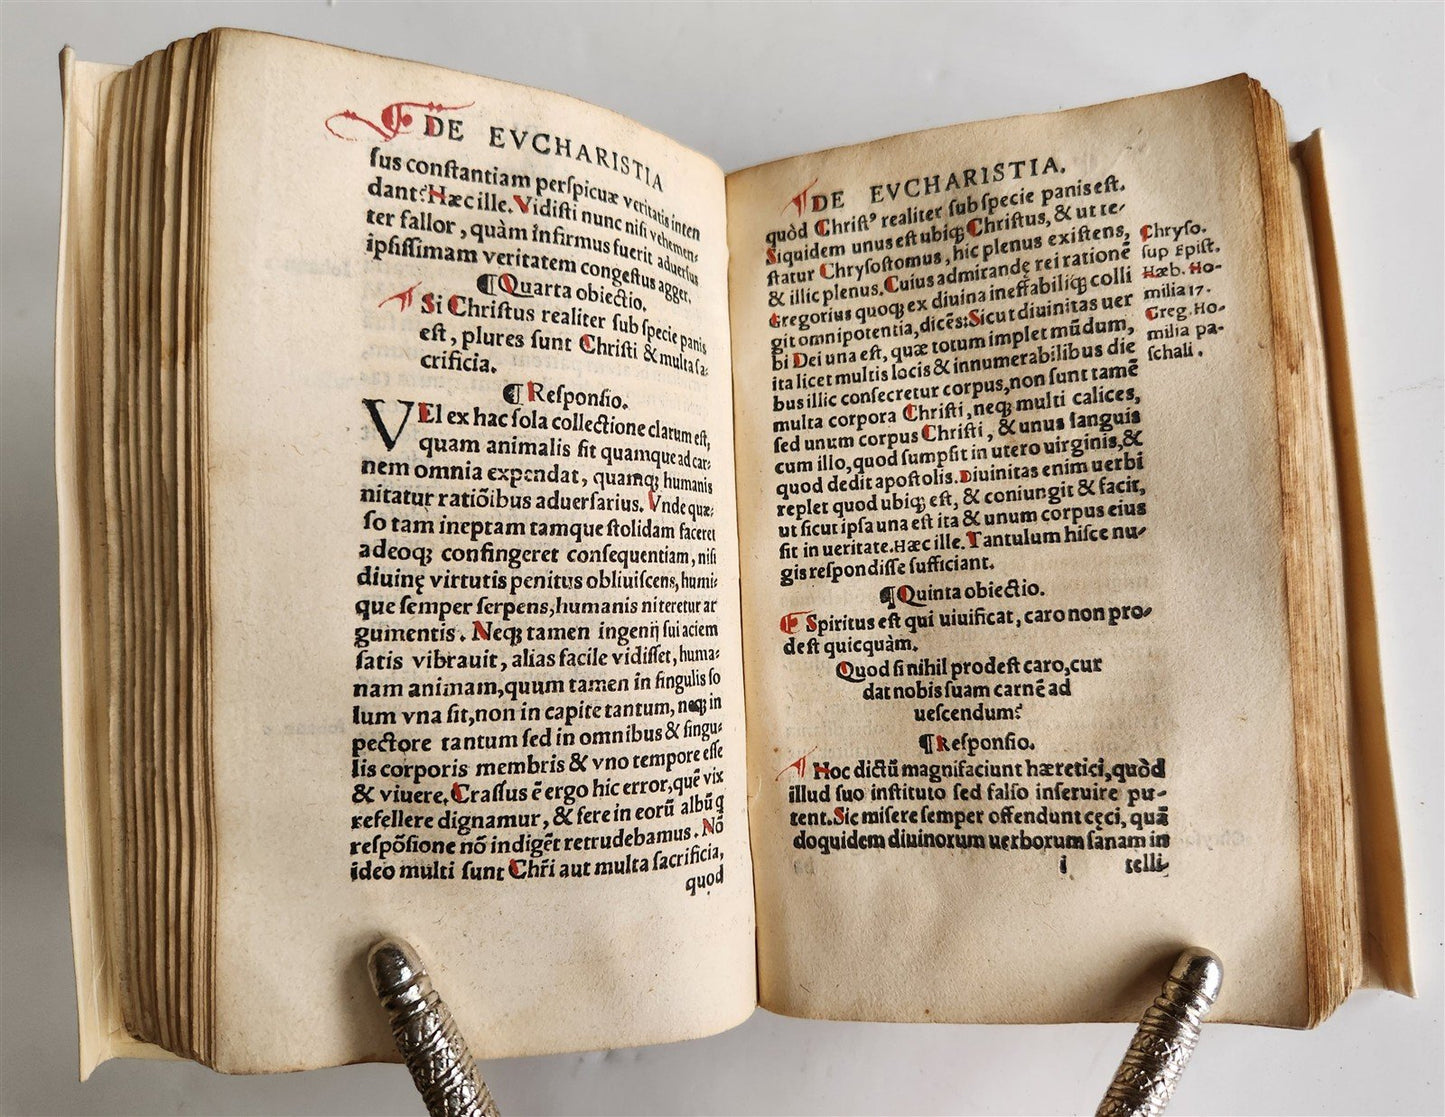 DE EVCHARISTIA
ſus conſtantiam perſpicuæ veritatis inten
dant? Hæc ille. Vidiſti nunc niſi vehemen⸗
ter fallor, quàm infirmus fuerit aduerſus
ipſiſſimam veritatem congeſtus agger.
¶ Quarta obiectio.
Si Chriſtus realiter ſub ſpecie panis
eſt, plures ſunt Chriſti & multa ſa⸗
crificia.
¶ Reſponſio.
VEl ex hac ſola collectione clarum eſt,
quam animalis ſit quamque ad car⸗
nem omnia expendat, quamqꝫ humanis
nitatur ratiõibus aduerſarius. Vnde quæ⸗
ſo tam ineptam tamque ſtolidam faceret
adeoqꝫ confingeret conſequentiam, niſi
diuinę virtutis penitus obliuiſcens, humi⸗
que ſemper ſerpens, humanis niteretur ar
gumentis. Neqꝫ tamen ingenij ſui aciem
ſatis vibrauit, alias facile vidiſſet, huma⸗
nam animam, quum tamen in ſingulis ſo
lum vna ſit, non in capite tantum, neqꝫ in
pectore tantum ſed in omnibus & ſingu⸗
lis corporis membris & vno tempore eſſe
& viuere. Craſſus ẽ ergo hic error, quẽ vix
refellere dignamur, & fere in eorũ albũ q
reſpõſione nõ indigẽt retrudebamus. Nõ
ideo multi ſunt Chr̃i aut multa ſacrificia,
quod
DE EVCHARISTIA.
quòd Chriſt⁹ realiter ſub ſpecie panis eſt.
Siquidem unus eſt ubiqꝫ Chriſtus, & ut te⸗
ſtatur Chryſoſtomus, hic plenus exiſtens,
& illic plenus. Cuius admirandę rei rationẽ
Gregorius quoqꝫ ex diuina ineffabiliqꝫ colli
git omnipotentia, dicẽs: Sicut diuinitas uer
bi Dei una eſt, quæ totum implet mũdum,
ita licet multis locis & innumerabilibus die
bus illic conſecretur corpus, non ſunt tamẽ
multa corpora Chriſti, neqꝫ multi calices,
ſed unum corpus Chriſti, & unus ſanguis
cum illo, quod ſumpſit in utero uirginis, &
quod dedit apoſtolis. Diuinitas enim uerbi
replet quod ubiqꝫ eſt, & coniungit & facit,
ut ſicut ipſa una eſt ita & unum corpus eius
ſit in ueritate. Hæc ille. Tantulum hiſce nu⸗
gis reſpondiſſe ſufficiant.
¶ Quinta obiectio.
Spiritus eſt qui uiuificat, caro non pro⸗
deſt quicquàm.
Quod ſi nihil prodeſt caro, cur
dat nobis ſuam carnẽ ad
ueſcendum?
¶ Reſponſio.
Hoc dictũ magnifaciunt hæretici, quòd
illud ſuo inſtituto ſed falſo inſeruire pu⸗
tent. Sic miſere ſemper offendunt cęci, quã
doquidem diuinorum uerborum ſanam in
i telli⸗
Chryſo.
sup Epiſt.
Hæb. Ho⸗
milia 17.
Greg. Ho⸗
milia pa⸗
ſchali.